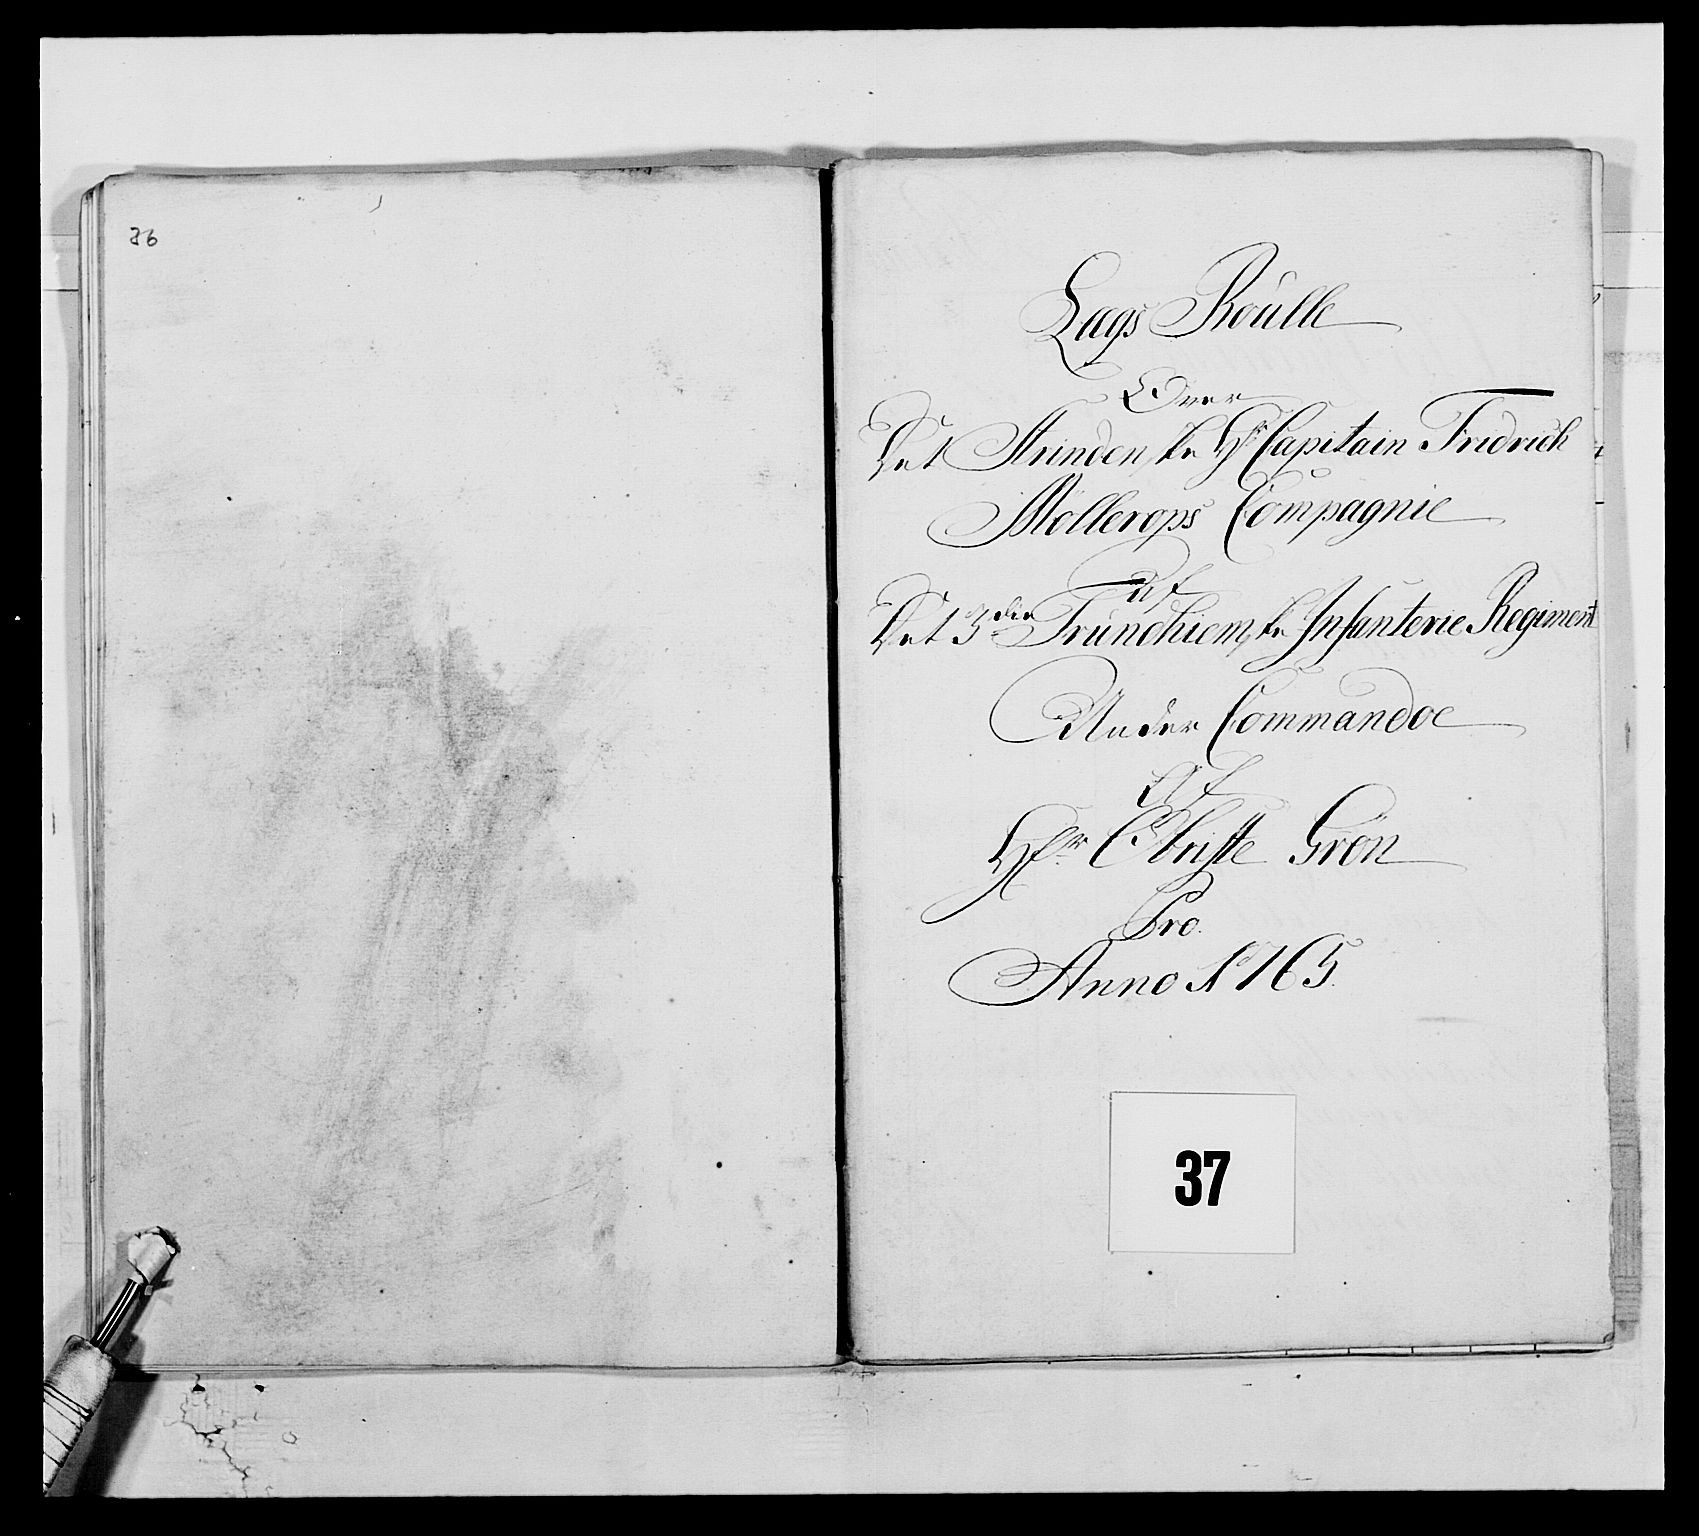 36
Laegs Roulle
Over
Det Strinden ske Hr Capitain Fridrich
Möllerops Compagnie
Af
Det 3die Trundhiem ske Infanterie Regiment
Under Commandoe
Af
Hr Obriste Grön
Pro.
Anno 1765.
37